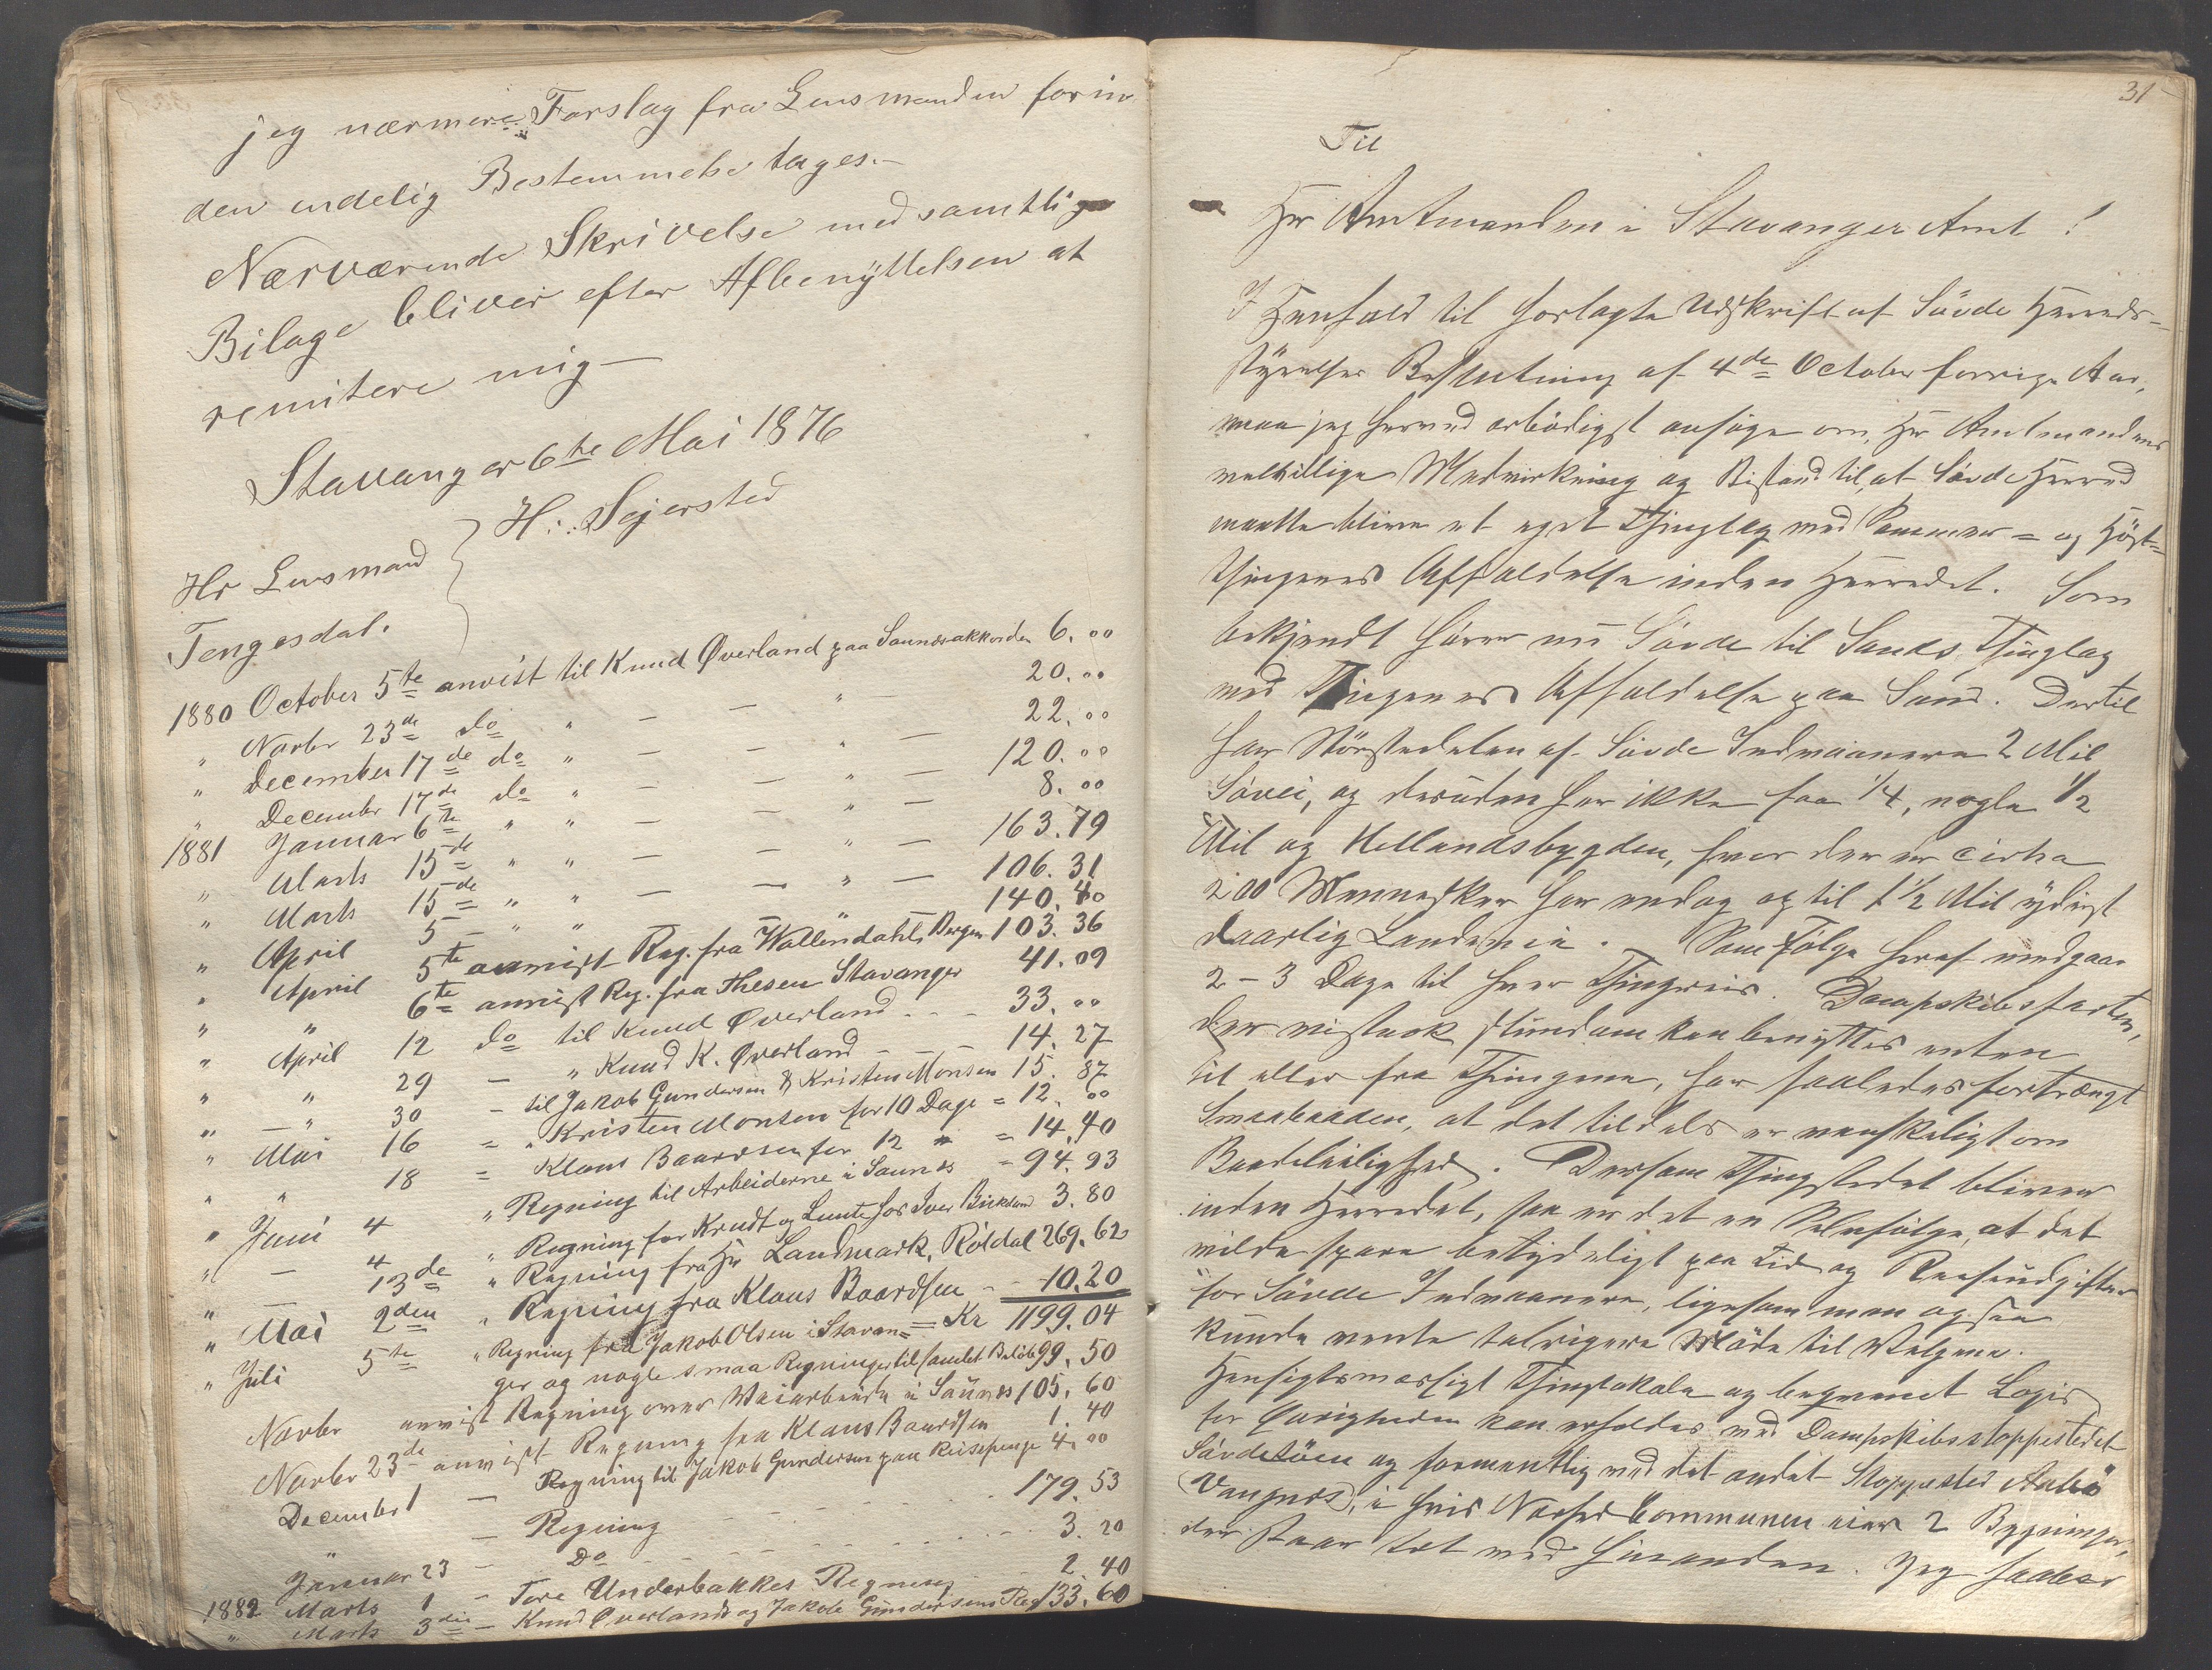 jeg nærmere Forslag fra Lensmanden forin
den endelig Bestemmelse tages.-
Nærværende Skrivelse med samtlige
Bilage bliver efter Afbenyttelsen at
remitere mig-
Stavanger 6te Mai 1876
H:. Sejersted
Hr Lensmand
Tengesdal.
1880 October 5te anvist til Knud Øverland paa Saunesakkorden 6.00
" Novbr 23de do " — — " — 20.00
" December 17de do " — — " — 22.00
" December 17de do " — — " — 120.00
1881 Januar 6te " " — — " — 8.00
" Marts 15de " " — — " — 163.79
" Marts 15de " " — — " — 106.31
" April 5 — " " — — " — 140.40
" April 5te anvist Reg. fra Wallendahls Bergen 103.36
" " 6te anvist Reg. fra Thesen Stavanger 41.09
" April 12 do til Knud Øverland - - - 33.00
" " 29 — " Knud K. Øverland - - - 14.27
" — " 30 - til Jakob Gundersen & Kristen Monsen 15.87
" Mai 16 = " Kristen Monsen for 10 Dage = 12.00
" " 18 = Klaus Baardsen for 12 " = 14.40
" Juni 4 " Regning til Arbeiderne i Saunes - 94.93
" — 4 " Regning for Krudt og Lunte hos Iver 3.80
" — 13de " Regning fra Hr Landmark, Röldal 269.62
" Mai 2den " Regning fra Klaus Baardsen - - 10.20
" Juli 5te " Regning fra Jakob Olsen i Stavan= = Kr 1199.04
ger og nogle smaa Regninger til samlet Beløb 99.50
Novbr anvist Regning over Veiarbeide i Saunes 105.60
Novbr 23de anvist Regning fra Klaus Baardsen 1.40
December 1 — Regning til Jakob Gundersen paa Reisepenge 4.00
" — Regning - - - - - - 179.53
Januar 23 - Do - - - - - - 3.20
1882 Marts 1 - Tore Underbakkes Regning - - 2.40
" Marts 3die - Knud Øverlands og Jakob Gundersens Reg 133.60
31
Til
Hr Amtmanden i Stavanger Amt!
I Henhold til Forlagte Udskrift af Søvde Herreds-
styrelses Beslutning af 4de October forrige Aar,
maa jeg herved ærbødigst ansøge om, Hr Amtmandens
velvillige Medvirkning og Bistand til, at Søvde Herred
maatte blive et eget Thinglag med Sommer= og Høst=
thingenes Affholdelse inden Herredet. Som
bekjendt hører nu Søvde til Sands Thinglag
med Thingenes Affholdelse paa Sand. Dertil
har Størstedelen af Søvde Indvaanere 2 Mil
Søvei, og desuden har ikke faa 1/4, nogle 1/2
Mil og Hellandsbygden, hvor der er cirka
200 Mennesker har endog op til 1 1/2 Mil yderst
daarlig Landevei. Som Følge heraf medgaar
2-3 Dage til hver Thingreis. Dampskibsfarten,
der vistnok stundom kan benyttes enten
til eller fra Thingene, har saaledes fortrængt
Smaabaaden, at det tildels er vanskeligt om
Baadleilighed. Dersom Thingstedet bliver
inden Herredet, saa er det en Selvfølge, at det
vilde spare betydeligt paa Tid og Reiseudgifter
for Søvde Indvaanere, ligesom man ogsaa
kunde vente talrigere Møde til Valgene.
Hensigtsmæssigt Thinglokale og beqvemt Logis
for Øvrigheden kan erholdes ved Dampskibsstoppestedet
Søvdetöen og formentlig ved det andet Stoppested Anbø
(Vangnes), i hvis Nærhed Communen eier 2 Bygninger,
der staar tet ved hinanden. Jeg haaber